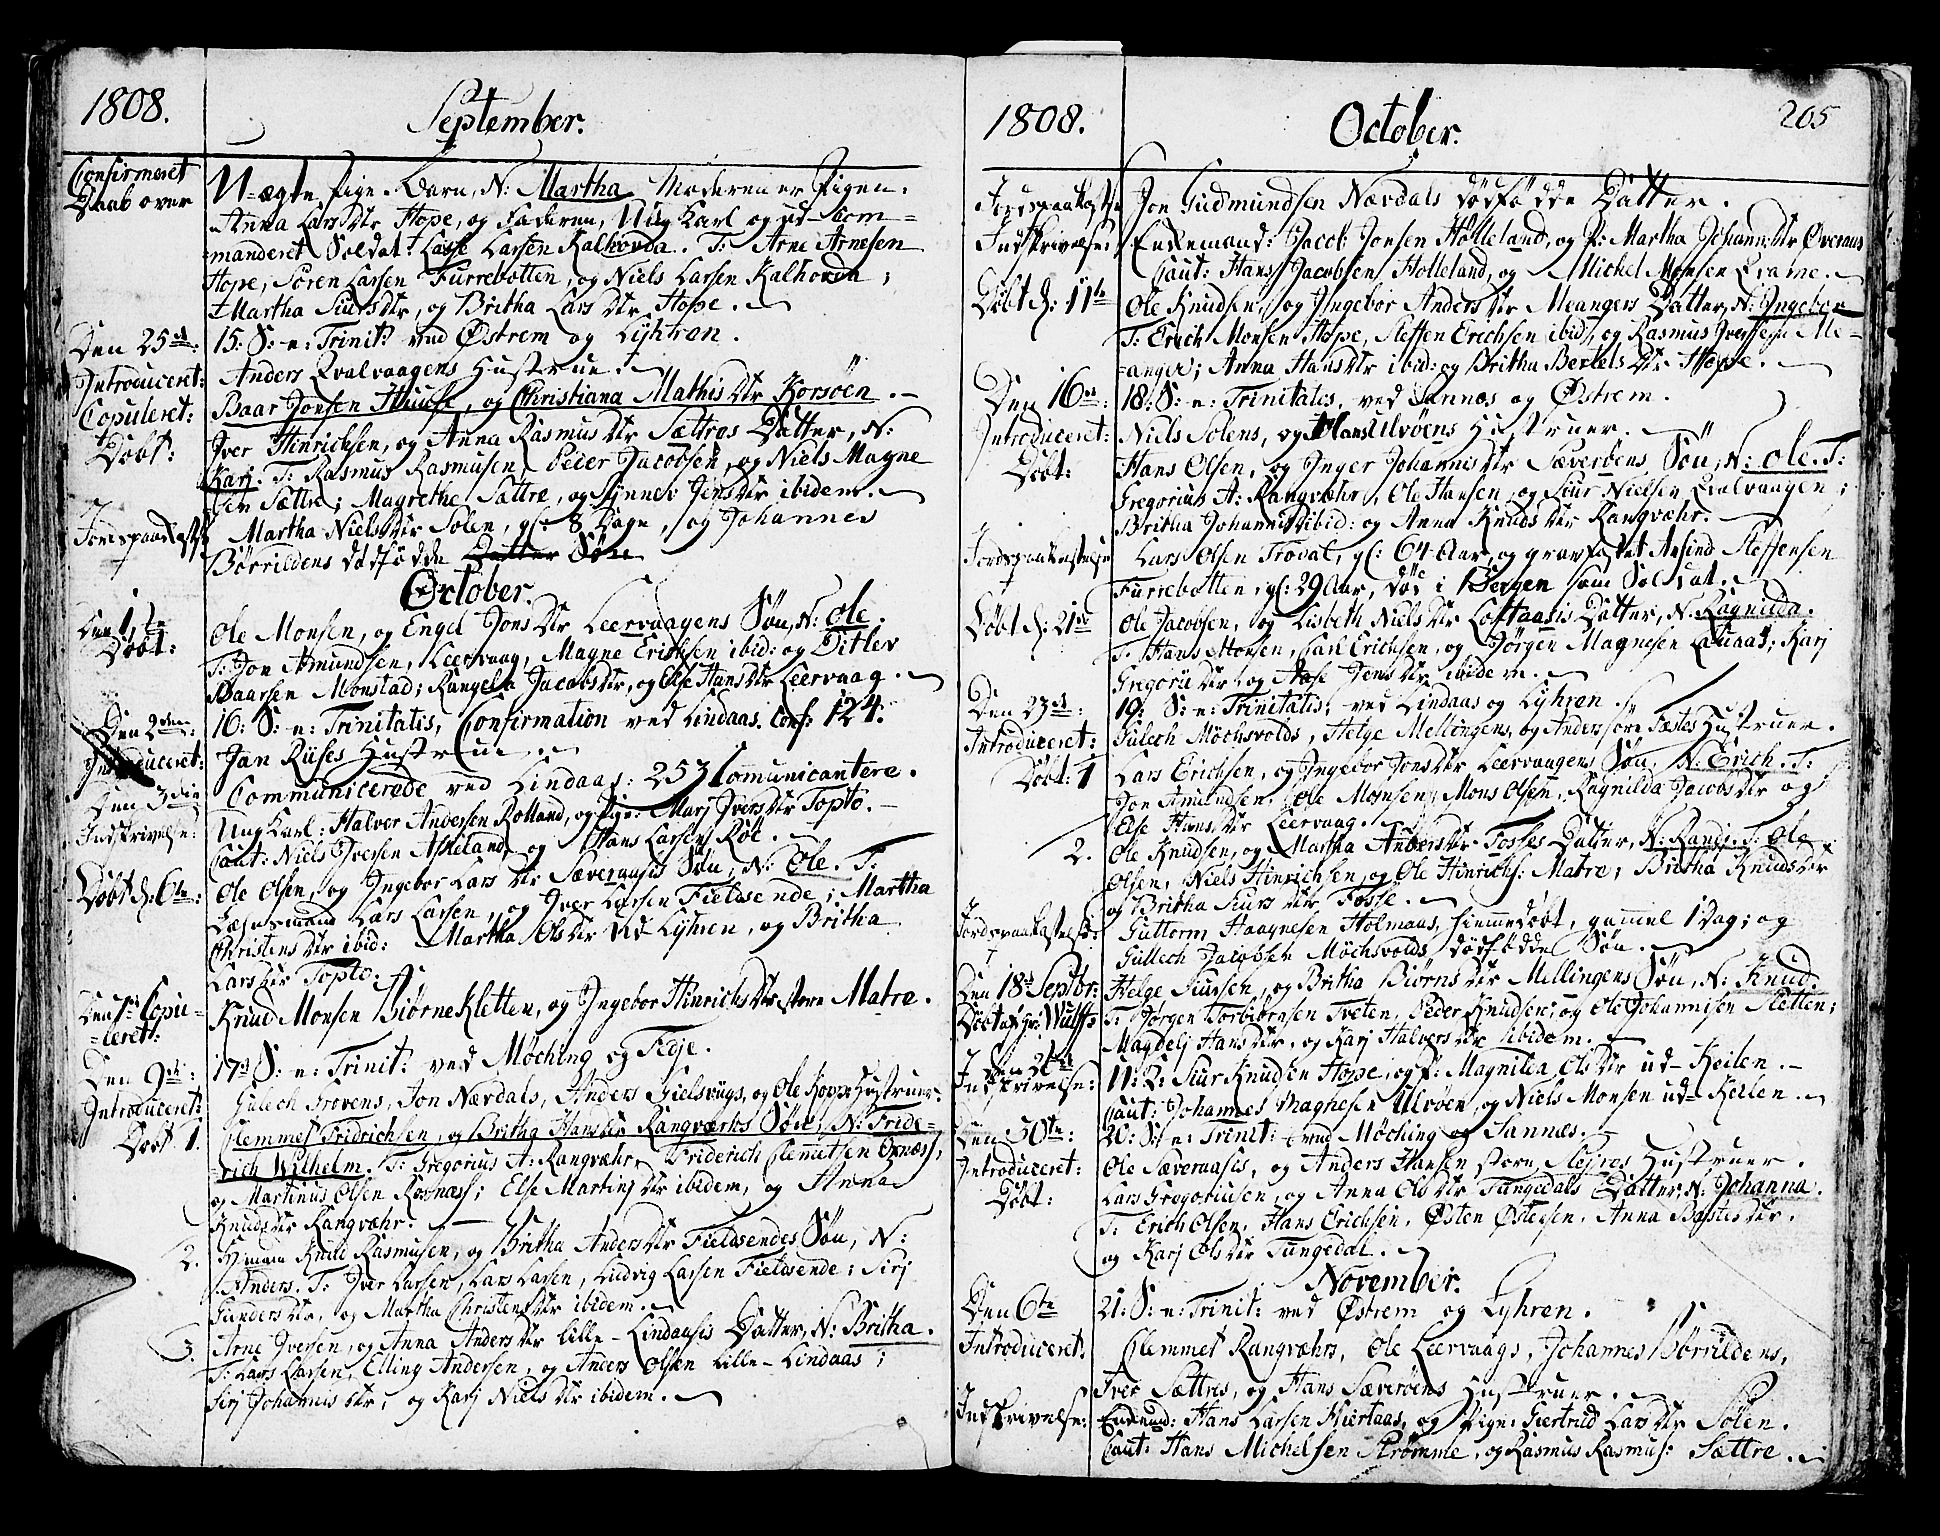 1808.
September.
Confirmeret
Daab over
U-ægte Pige-Barn, N: Martha Moderen er Pigen
Anna Lars Dtr Hope, og Faderen, Ung Karl og ud-Com-
-manderet Soldat Lasse Larsen Kalhovda. T: Arne Arnesen
Hope, Sören Larsen Furrebotten, og Niels Larsen Kalhovda;
Martha Siurs Dtr, og Britha Lars Dtr Hope.
Den 25de:
15: S: e: Trinit: ved Østrem og Lyhren.
Introduceret:
Anders Qvalvaagens Hustrue.
Copuleret:
Baar Jonsen Huuse, og Christiana Mathis Dtr Korsöen.
Döbt:
Iver Hinrichsen, og Anna Rasmus Dtr Sættres Datter, N:
Karj. T: Rasmus Rasmusen, Peder Jacobsen, og Niels Magne
sen Sættre; Magrethe Sættre, og Synnev Jens Dtr ibidem.
Jordspaakast:
Martha Niels Dtr Solen, gl: 8 Dage, og Johannes
Börrildens dödfödde Datter Sön
October.
Den 1te
Döbt:
Ole Monsen, og Engel Jons Dtr Leervaagens Sön, N: Ole.
T: Jon Amundsen, Leervaag, Magne Erichsen ibid: og Ditlev
Baarsen Monstad; Rangela Jacobs Dtr, og Else Hans Dtr Leervaag.
Den 2den:
16: S: e: Trinitatis, Confirmation ved Lindaas. Conf: 124.
Introduceret:
Jan Riises Hustrue
Den 3die
Communicerede ved Lindaas: 253 Communicantere.
Indskrivelse:
Ung Karl: Halver Andersen Rolland, og Pige: Marj Ivers Dtr Topto.
Caut: Niels Iversen Askeland, og Hans Larsen Röe.
Döbt d: 6te:
Ole Olsen, og Ingebor Lars Dtr Sæveraasis Sön, N: Ole. T:
Lehnsmand Lars Larsen, og Iver Larsen Fieldsende; Martha
Christens Dtr ibid: Martha Ols Dtr ud Lyhren, og Britha
Lars Dtr Topto.
Den 7de Copu-
-leret:
Knud Monsen Biørnekletten, og Ingebor Hinrichs Dtr store Matre.
Den 9de:
17de S: e: Trinit: ved Möching og Fedje.
Introduceret:
Gulech Grovens, Jon Nærdals, Anders Gielsvigs, og Ole Kopps Hustruer.
Döbt 1.
Clemmet Fridrichsen, og Britha Hans Dtr Rangværs Sön, N: Fride-
-rich Wilhelm. T: Gregorius A: Rangvæhr, Friderich Clemetsen
og Martinus Olsen; Else Martins Dtr ibidem, og Anna
Knuds Dtr Rangvæhr.
2.
Knud Rasmusen, og Britha Anders Dtr Fieldsendes Sön, N:
Anders. T: Iver Larsen, Lars Larsen, Ludvig Larsen Fieldsende; Sirj
Gunders Dtr, og Martha Christens Dtr ibidem.
3.
Arne Iversen, og Anna Anders Dtr lille-Lindaasis Datter, N: Britha.
T: Lars Larsen, Elling Andersen, og Anders Olsen Lille-Lindaas;
Sirj Johannis Dtr, og Karj Niels Dtr ibidem.
1808.
October.
265
Jordspaakastelse
Jon Gudmundsen Nærdals dödfödde Datter.
Indskrivelse:
Enkemand: Jacob Jonsen Holleland, og P: Martha Johann: Dtr Øveraas
Caut: Hans Jacobsen Holleland, og Michel Monsen
Döbt d: 11te
Ole Knudsen, og Ingebor Anders Dtr Meangers Datter, N: Ingebor
T: Erich Monsen Hope, Steffen Erichsen ibid, og Rasmus Iversen Me-
-anger; Anna Hans Dtr ibid: og Britha Bertels Dtr Hope.
Den 16de:
18: S: e: Trinitatis, ved Sannæs og Østrem.
Introduceret:
Niels Solens, og Hans Ulvöens Hustruer.
Döbt:
Hans Olsen, og Inger Johannis Dtr Sæveröens Sön, N: Ole. T:
Gregorius A: Rangvæhr, Ole Hansen, og Siur Nielsen Qvalvaagen;
Britha Johannis ibid: og Anna Knuds Dtr Rangvæhr.
Jordspaakastelse
Lars Olsen Troval, gl: 64 Aar, og gravfæstet Amind Steffensen
Furrebotten, gl: 29 Aar, död i Bergen som Soldat.
Döbt d: 21de
Ole Jacobsen, og Lisbeth Niels Dtr Loftaasis Datter, N: Ragnilda.
T: Hans Monsen, Carl Erichsen, og Jörgen Magnesen Lauaas; Karj
Gregorii Dtr og Aase Jens Dtr ibidem.
Den 23de:
19: S: e: Trinitatis, ved Lindaas og Lyhren.
Introduceret:
Gulech Möchsvolds, Helge Mellingens, og Anders söre Fæstes Hustruer.
Döbt: 1
Lars Erichsen, og Ingebor Jons Dtr Leervaagens Sön, N: Erich. T:
Jon Amundsen, Ole Monsen, Mons Olsen, Ragnilda Jacobs Dtr og
Else Hans Dtr Leervaag.
2.
Ole Knudsen, og Martha Anders Dtr Fosses Datter, N: Randi. T: Ole
Olsen, Niels Hinrichsen, og Ole Hinrichs: Matre; Britha Knuds Dtr
og Britha Siurs Dtr Fosse.
Jordspaakastelse:
Guttorm Haagnesen Holmaas, hiemmedöbt, gammel 1 Dag; og
Gullech Jacobsen Möchsvolds dödfödde Sön.
Den 18de Septbr:
Helge Siursen, og Britha Biörns Dtr Mellingens Sön, N: Knud.
Döbt af Hr: Wulff:
T: Jörgen Torbiörnsen Tveten, Peder Knudsen, og Ole Johannisen Sletten;
Magdeli Hans Dtr, og Karj Halvers Dtr ibidem.
Den 26de
Indskrivelse:
U: K: Siur Knudsen Hope, og P: Magnilda Ols Dtr ud-Keilen.
Caut: Johannes Magnesen Ulvöen, og Niels Monsen ud-Keilen.
Den 30te:
20: S: e: Trinit: ved Möching og Sannæs.
Introduceret:
Ole Sæveraasis, og Anders Hansen store Hustruer.
Döbt:
Lars Gregoriusen, og Anna Ols Dtr Tungedals Datter, N: Johanna.
T: Erich Olsen, Hans Erichsen, Østen Østensen, Anna Baste Dtr
og Karj Ols Dtr Tungedal.
November.
Den 6te
21: S: e: Trinit: ved Østrem og Lyhren.
Introduceret:
Clemmet Rangvæhrs, Ole Leervaags, Johannes Börrildens,
Iver Sættres, og Hans Sæveröens Hustruer.
Indskrivelse:
Enkemd: Hans Larsen Hiertaas, og Pige: Giertrud Lars Dtr Sölen.
Caut: Hans Michelsen Strömme, og Rasmus Rasmus: Sættre.